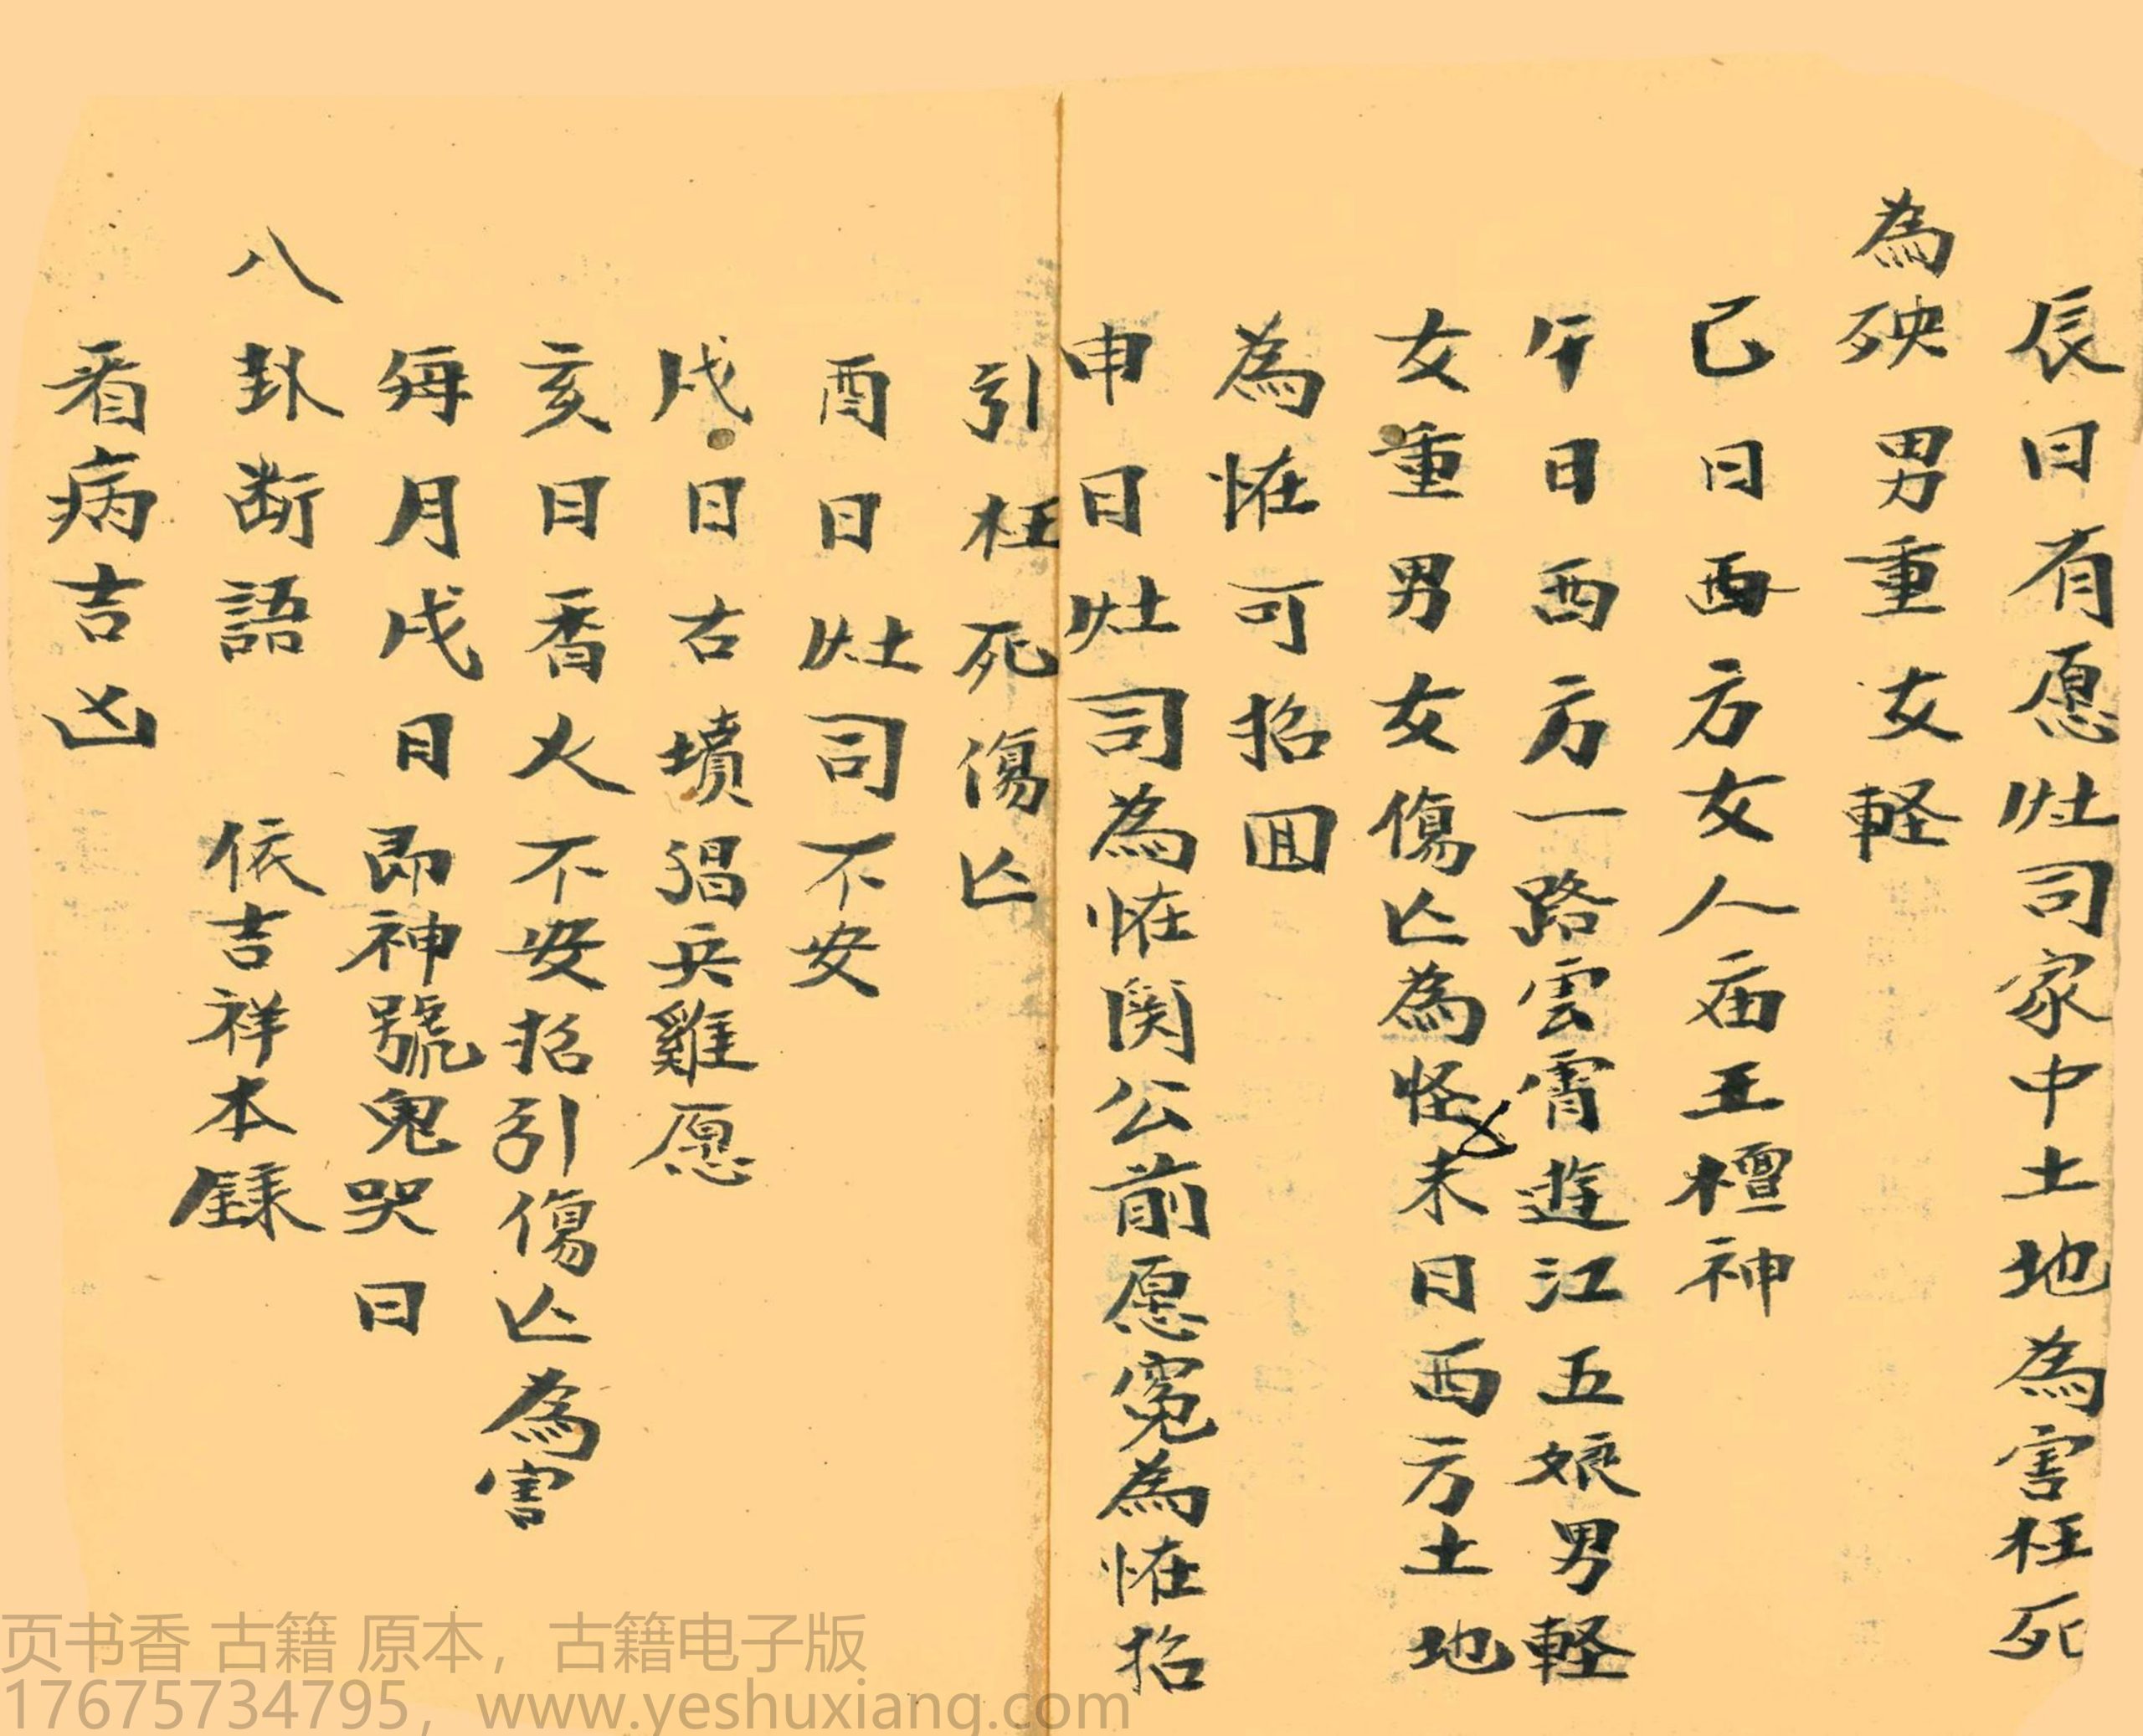 辰日有愿灶司家中土地為害枉死
為殃男重女軽
己日西方女人庙王檀神
午日西方一路雲霄遊江五娘男軽
女重男女傷亡為怪未日西方土地
為恠可招囬
申日灶司為恠関公前愿冤為恠招
引枉死傷亡
酉日灶司不安
戌日古墳猖兵雞愿
亥日香火不安招引傷亡為害
每月戌日即神號鬼哭日
八卦断語 依吉祥本錄
看病吉凶
页书香 古籍 原本，古籍电子版
17675734795，www.yeshuxiang.com